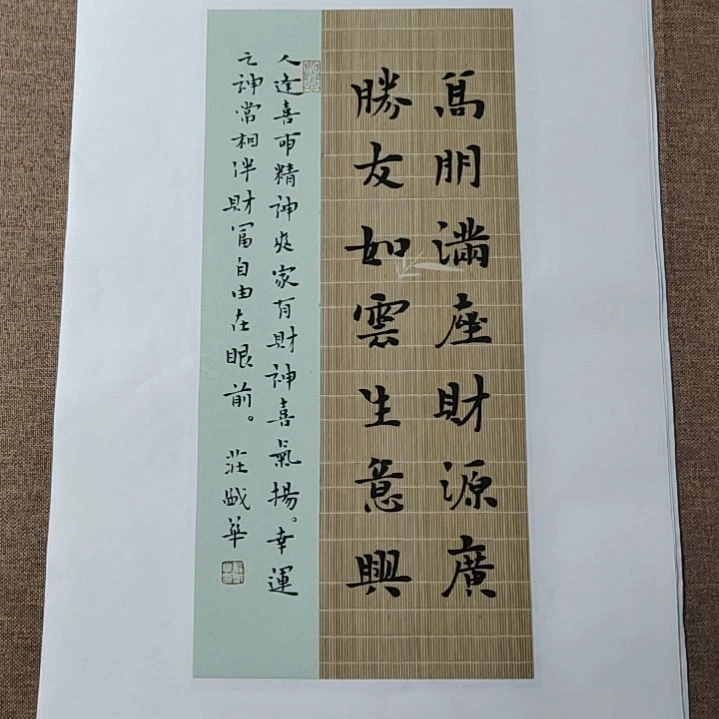 高朋满座財源廣
勝友如雲生意興
人逢喜事精神爽家有財神喜氣揚。幸運
之神常相伴財富自由在眼前。
莊華